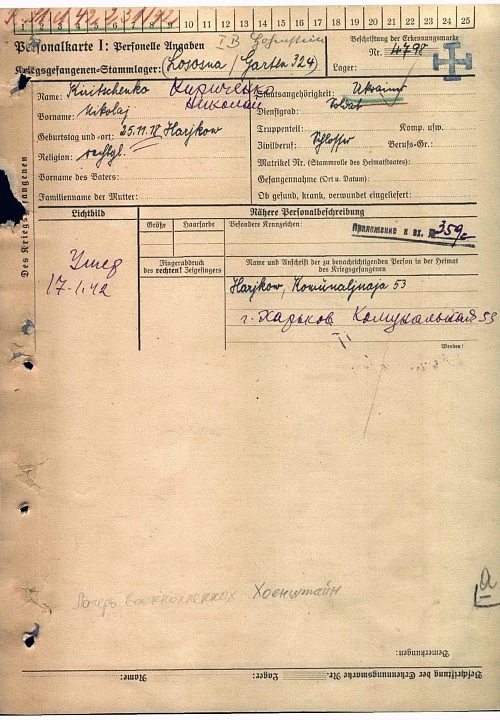 1 2 3 4 5 6 7 8 9 10 11 12 13 14 15 16 17 18 19 20 21 22 23 24 25
I B Hohenstein
Personalkarte I: Personelle Angaben
Beschriftung der Erkennungsmarke
Nr. 4798
Kriegsgefangenen-Stammlager: Lososna / Garten 324
Lager:
Des Kriegsgefangenen
Name: Kiritschenko Кириченко
Vorname: Nikolaj Николай
Geburtstag und -ort: 25.11.18 Harjkow
Religion: rechtgl.
Vorname des Vaters:
Familienname der Mutter:
Staatsangehörigkeit: Ukrainer
Dienstgrad: Soldat
Truppenteil: Komp. usw.
Zivilberuf: Schlosser Berufs-Gr.:
Matrikel Nr. (Stammrolle des Heimatstaates):
Gefangennahme (Ort u. Datum):
Ob gesund, krank, verwundet eingeliefert:
Lichtbild
Nähere Personalbeschreibung
Größe Haarfarbe Besondere Kennzeichen:
Приложение к вх. № 359с
Fingerabdruck
des rechten! Zeigefingers
Name und Anschrift der zu benachrichtigenden Person in der Heimat
des Kriegsgefangenen
Умер
17-1.42
Harjkow, Komunaljnaja 53
г. Харьков Комунальная 53
Wenden!
Лагерь военнопленных Хоенштайн
а
Bemerkungen:
Beschriftung der Erkennungsmarke Nr. Lager: Name: